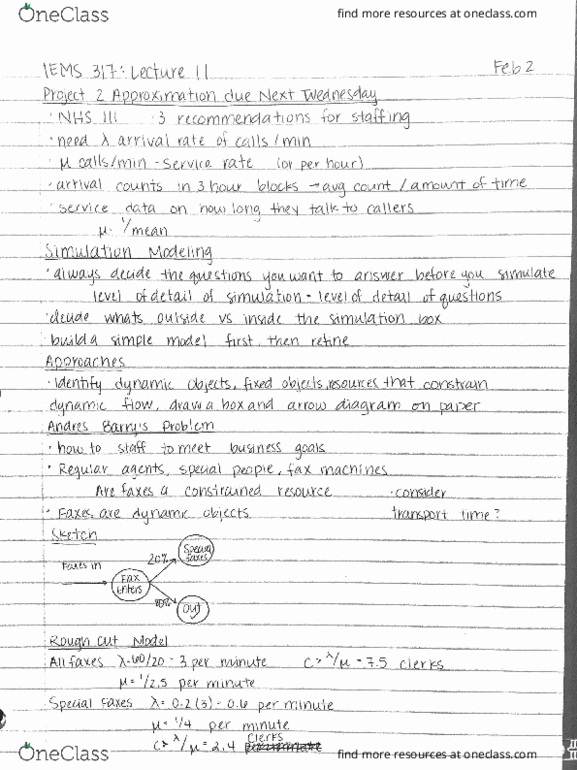 OneClass
find more resources at oneclass.com
IEMS 317: Lecture 11
Feb 2
Project 2 Approximation due Next Wednesday
· NHS 111 : 3 recommendations for staffing
· need λ arrival rate of calls/min
· μ calls/min - service rate (or per hour)
· arrival counts in 3 hour blocks → avg count / amount of time
· service data on how long they talk to callers
μ = 1/mean
Simulation Modeling
· always decide the questions you want to answer before you simulate
level of detail of simulation = level of detail of questions
· decide whats outside vs inside the simulation box
· build a simple model first, then refine
Approaches
· Identify dynamic objects, fixed objects, resources that constrain
dynamic flow, draw a box and arrow diagram on paper
Andres Barry's Problem
· how to staff to meet business goals
· Regular agents, special people, fax machines
Are faxes a constrained resource
· consider
transport time?
· Faxes are dynamic objects
Sketch
Faxes in
Fax enters
20%
Special faxes
80%
Out
Rough Cut Model
All faxes λ = 60/20 = 3 per minute c > λ/μ = 7.5 clerks
μ = 1/2.5 per minute
Special faxes λ = 0.2(3) = 0.6 per minute
μ = 1/4 per minute
c > λ/μ = 2.4 clerks
OneClass
find more resources at oneclass.com